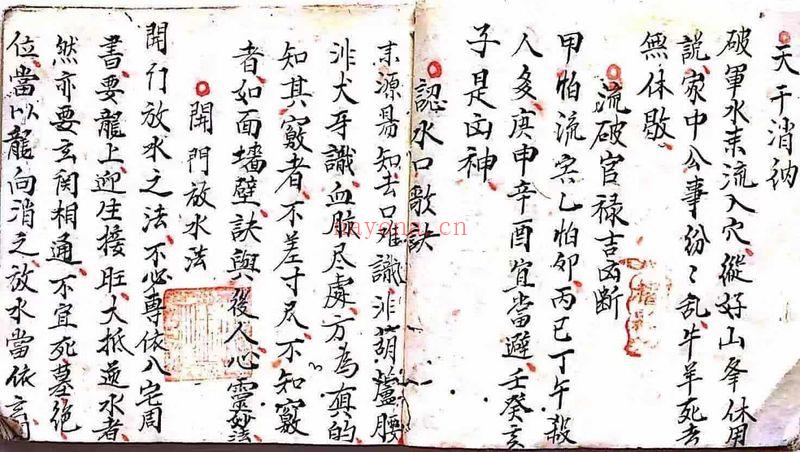 天干消納
破軍水来流入穴縱好山峯休用
說家中公事份〻乱牛羊死去
無休歇
流破官禄吉凶断
甲怕流寅乙怕卯丙巳丁午殺
人多庚申辛酉宜當避壬癸亥
子是凶神
認水口歌訣
来源易知去口难識非葫蘆腰
非犬牙識血脉尽處方為真的
知其竅者不差寸尺不知竅
者如面墻壁訣與後人心靈妙法
開門放水法
開门放水之法不必專依八宅周
書要龍上迎生接旺大抵逆水者
然亦要玄関相通不宜死墓絕
位當以龍向消之放水當依玄
nayona.cn